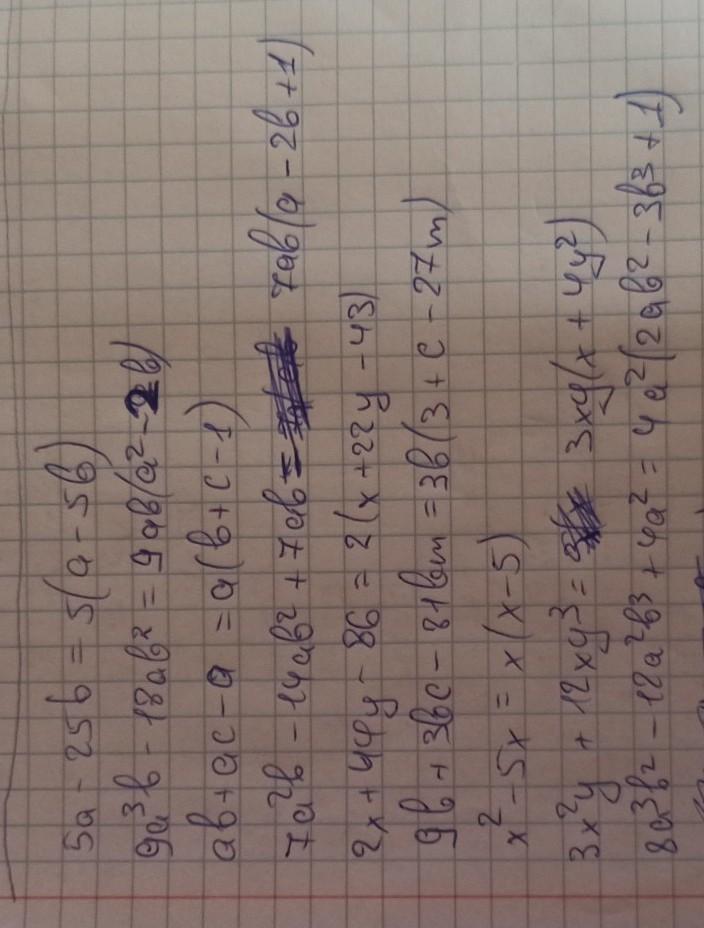 5a - 25b = 5(a - 5b)
9a³b - 18ab² = 9ab(a² - 2b)
ab + ac - a = a(b + c - 1)
7a²b - 14ab² + 7ab = 7ab(a - 2b + 1)
2x + 44y - 86 = 2(x + 22y - 43)
9b + 3bc - 81bm = 3b(3 + c - 27m)
x² - 5x = x(x - 5)
3x²y + 12xy³ = 3xy(x + 4y²)
8a³b² - 12a²b³ + 4a² = 4a²(2ab² - 3b³ + 1)